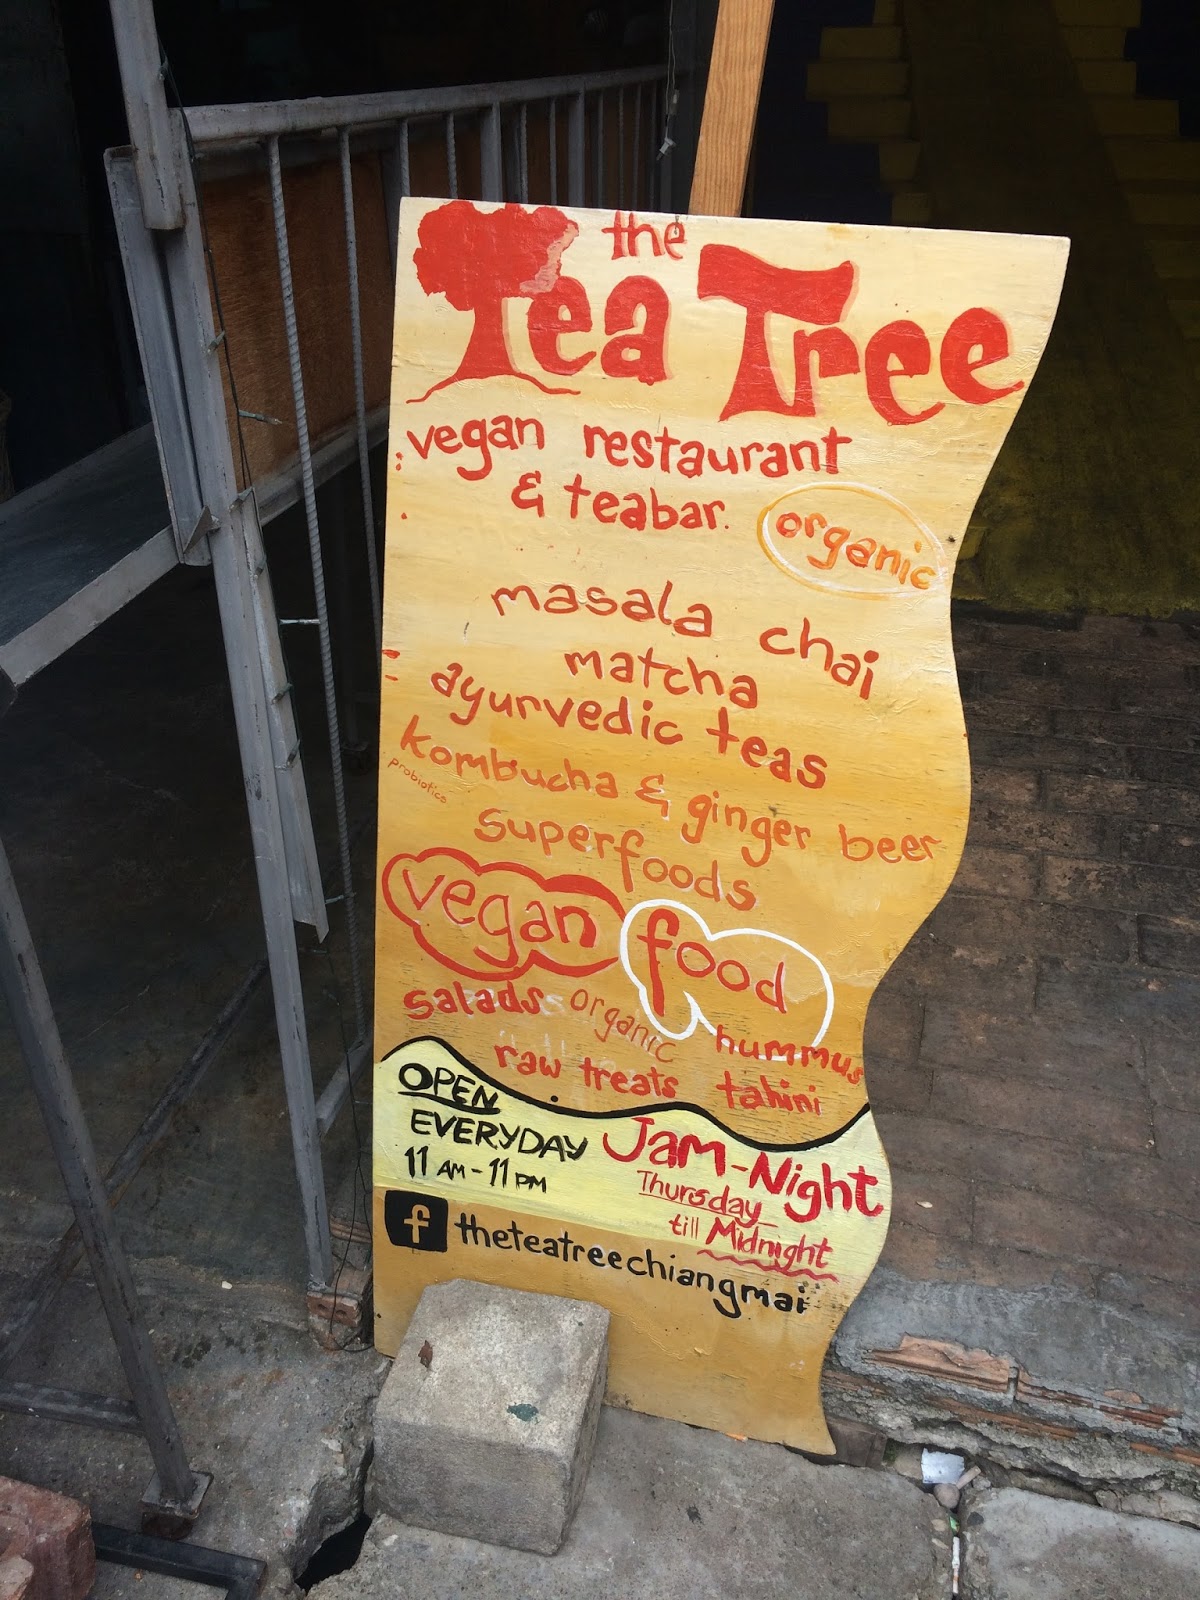 the
Tea Tree
vegan restaurant
& teabar.
organic
masala chai
matcha
ayurvedic teas
kombucha & ginger beer
probiotics
superfoods
vegan food
salads organic hummus
raw treats tahini
OPEN
EVERYDAY
11 AM - 11 PM
Jam-Night
Thursday
till Midnight
f theteatreechiangmai